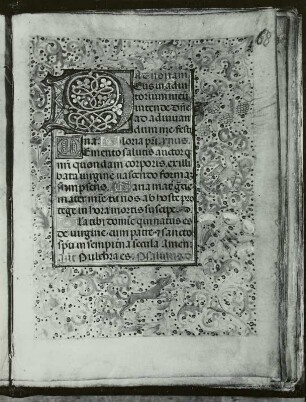 68
Ad nonam
Deus in adiu
torium meū
intende. Dn̄e
ad adiuvan
dum me festi
na. Gloria pr̄i. Ymnus.
Memento salutis auctor q
nr̄i quondam corporis, ex illi
bata virgine nascendo formaz
sumpseris. Maria mat̄ gr̄ie
mater mīe tu nos ab hoste pro
tege in hora mortis suscipe.
Gloria tibi domine qui natus es
de virgine cum patre ⁊ sancto
spū in sempiterna secula Amen
Pulchra es. Psalmus